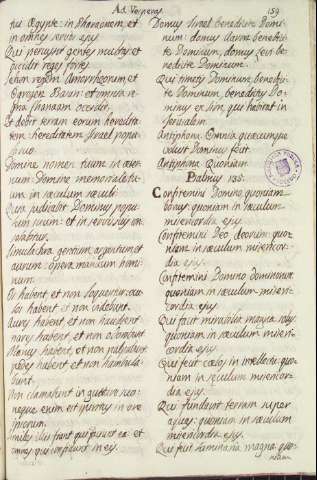 Ad Vesperas
159
tui Ægypte: in Pharaonem, et
in omnes servos ejus
Qui percussit gentes multas et
occidit reges fortes
Sehon regem Amorrheorum et
Og regem Basan: et omnia re
gna Chanaan occidit.
Et dedit terram eorum heredita
tem: hereditatem Israel popu
lo suo.
Domine nomen tuum in æter
num: Domine memoriale tu
um in sæculum sæculi
Quia judicabit Dominus popu
lum suum: et in servis suis con
solabitur.
Simulachra gentium argentum et
aurum: opera manuum homi
num.
Os habent et non loquentur: ocu
los habent et non videbunt.
Aures habent et non audient
nares habent, et non odorabunt
Manus habent, et non palpabunt
pedes habent et non hambula
bunt.
Non clamabunt in gutture suo:
neque enim est spiritus in ore
ipsorum.
Similes illis fiant qui faciunt ea: et
omnes qui confidunt in eis.
Domus Israel benedicite Domi
num: domus Aaron benedici
te Dominum, domus Levi be
nedicite Dominum.
Qui timetis Dominum, benedici
te Dominum, benedictus Do
minus ex Sion, qui habitat in
Jerusalem
Antiphona: Omnia quæcumque
voluit Dominus fecit
Antiphona Quoniam
Psalmus 135.
Confitemini Domino quoniam
bonus: quoniam in sæculum
misericordia ejus
Confitemini Deo deorum: quo
niam in sæculum misericor
dia ejus.
Confitemini Domino dominorum
quoniam in sæculum miseri
cordia ejus
Qui facit mirabilia magna solus
quoniam in sæculum miseri
cordia ejus
Qui fecit cælos in intellectu: quo
niam in sæculum misericor
dia ejus
Qui fundavit terram super
aquas: quoniam in sæculum
misericordia ejus.
Qui fecit luminaria magna: quo
niam